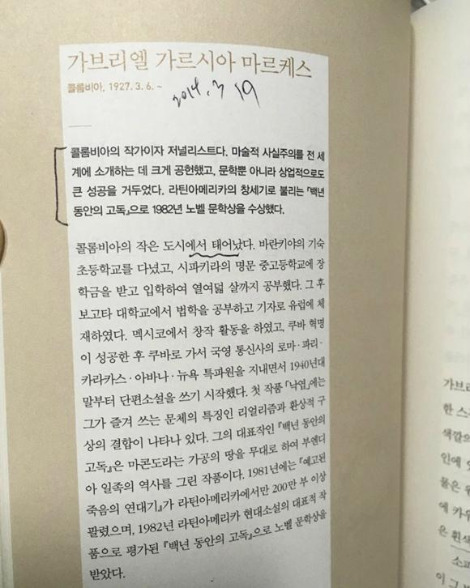 가브리엘 가르시아 마르케스
콜롬비아, 1927. 3. 6. ~
2014. 3 19
콜롬비아의 작가이자 저널리스트다. 마술적 사실주의를 전 세
계에 소개하는 데 크게 공헌했고, 문학뿐 아니라 상업적으로도
큰 성공을 거두었다. 라틴아메리카의 창세기로 불리는 『백년
동안의 고독』으로 1982년 노벨 문학상을 수상했다.
콜롬비아의 작은 도시에서 태어났다. 바란키야의 기숙
초등학교를 다녔고, 시파키라의 명문 중고등학교에 장
학금을 받고 입학하여 열여덟 살까지 공부했다. 그 후
보고타 대학교에서 법학을 공부하고 기자로 유럽에 체
재하였다. 멕시코에서 창작 활동을 하였고, 쿠바 혁명
이 성공한 후 쿠바로 가서 국영 통신사의 로마·파리·
카라카스·아바나·뉴욕 특파원을 지내면서 1940년대
말부터 단편소설을 쓰기 시작했다. 첫 작품 『낙엽』에는
그가 즐겨 쓰는 문체의 특징인 리얼리즘과 환상적 구
상의 결합이 나타나 있다. 그의 대표작인 『백년 동안의
고독』은 마콘도라는 가공의 땅을 무대로 하여 부엔디
아 일족의 역사를 그린 작품이다. 1981년에는 『예고된
죽음의 연대기』가 라틴아메리카에서만 200만 부 이상
팔렸으며, 1982년 라틴아메리카 현대소설의 대표적 작
품으로 평가된 『백년 동안의 고독』으로 노벨 문학상을
받았다.
가브리
한 스
색깔으
인에 있
물은 우
에 카우
은 흰색
소고
이 그